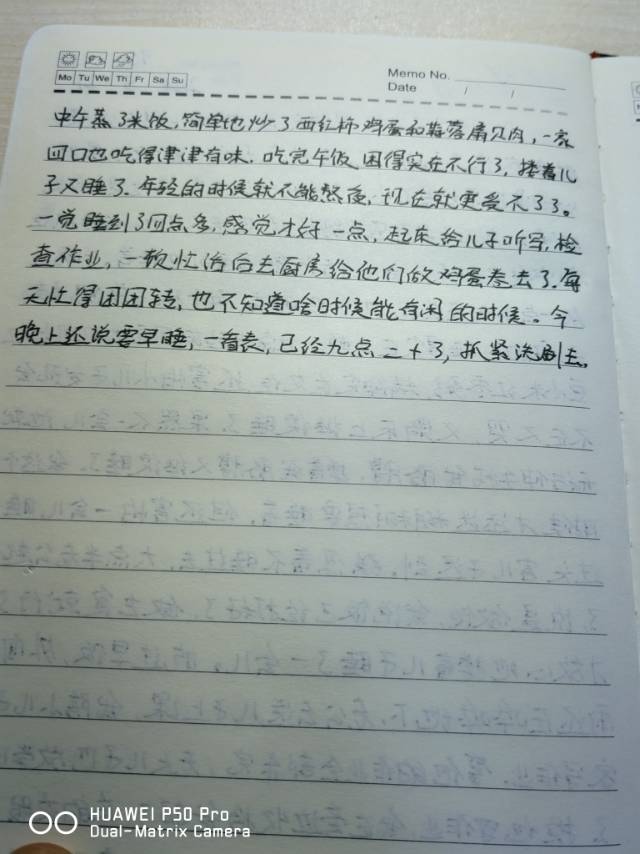 Memo No.
Mo Tu We Th Fr Sa Su
Date / /
中午蒸了米饭,简单地炒了西红柿鸡蛋和海蓉扇贝肉,一家
四口也吃得津津有味。吃完午饭困得实在不行了,搂着儿
子又睡了。年轻的时候就不能熬夜,现在就更受不了了。
一觉睡到了四点多,感觉才好一点,起床给儿子听写,检
查作业,一顿忙活后去厨房给他们做鸡蛋卷去了。每
天忙得团团转,也不知道啥时候能有闲的时候。今
晚上还说要早睡,一看表,已经九点二十了,抓紧洗刷去。
HUAWEI P50 Pro
Dual-Matrix Camera